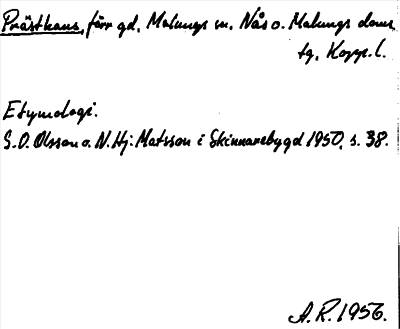 Prästkaus, förr gd, Malungs sn. Nås o. Malungs doms
tg, Kopp. l.
Etymologi.
S.O. Olsson o. N. Hj. Matsson i Skinnarebygd 1950, s. 38.
A.R. 1956.